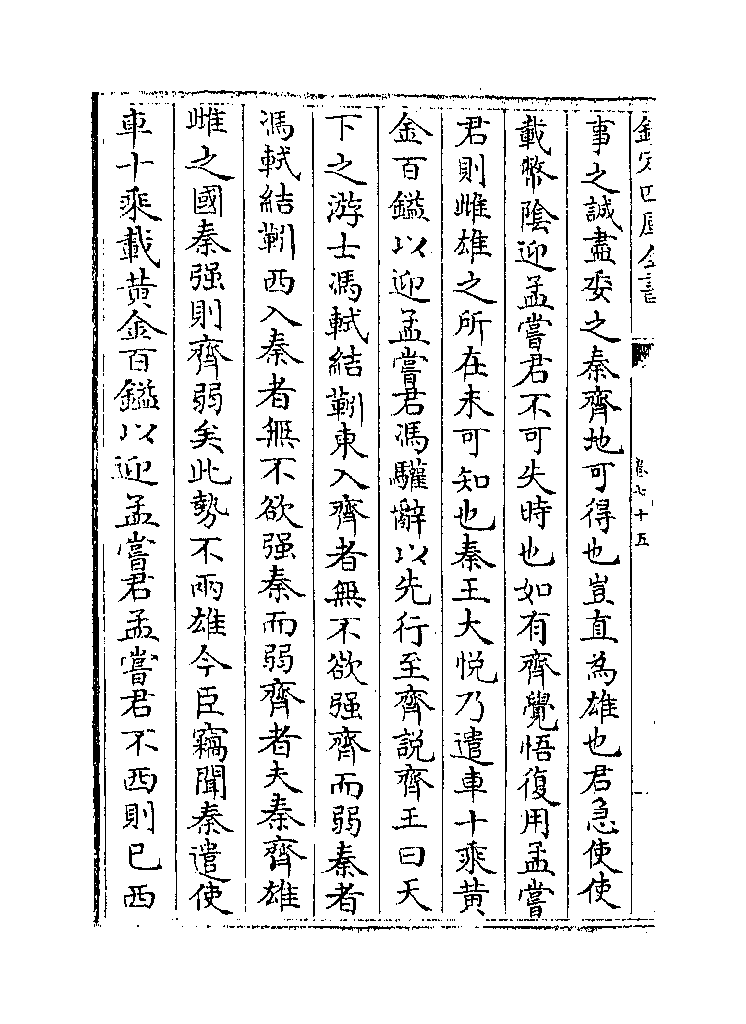 欽定四庫全書
卷七十五
事之誠盡委之秦齊地可得也豈直為雄也君急使使
載幣陰迎孟嘗君不可失時也如有齊覺悟復用孟嘗
君則雌雄之所在未可知也秦王大悅乃遣車十乘黃
金百鎰以迎孟嘗君馮驩辭以先行至齊說齊王曰天
下之游士馮軾結靷東入齊者無不欲强齊而弱秦者
馮軾結靷西入秦者無不欲强秦而弱齊者夫秦齊雄
雌之國秦强則齊弱矣此勢不兩雄今臣竊聞秦遣使
車十乘載黃金百鎰以迎孟嘗君孟嘗君不西則已西